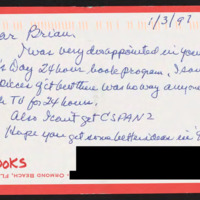 1/3/97
ear Brian,
I was very disappointed in your
Day 24 hour book program, I
was no way anyone
TV for 24 hours.
Also I can't get CSPAN 2
Hope you get some better idea in 9
OOKS
ORMOND BEACH, FL